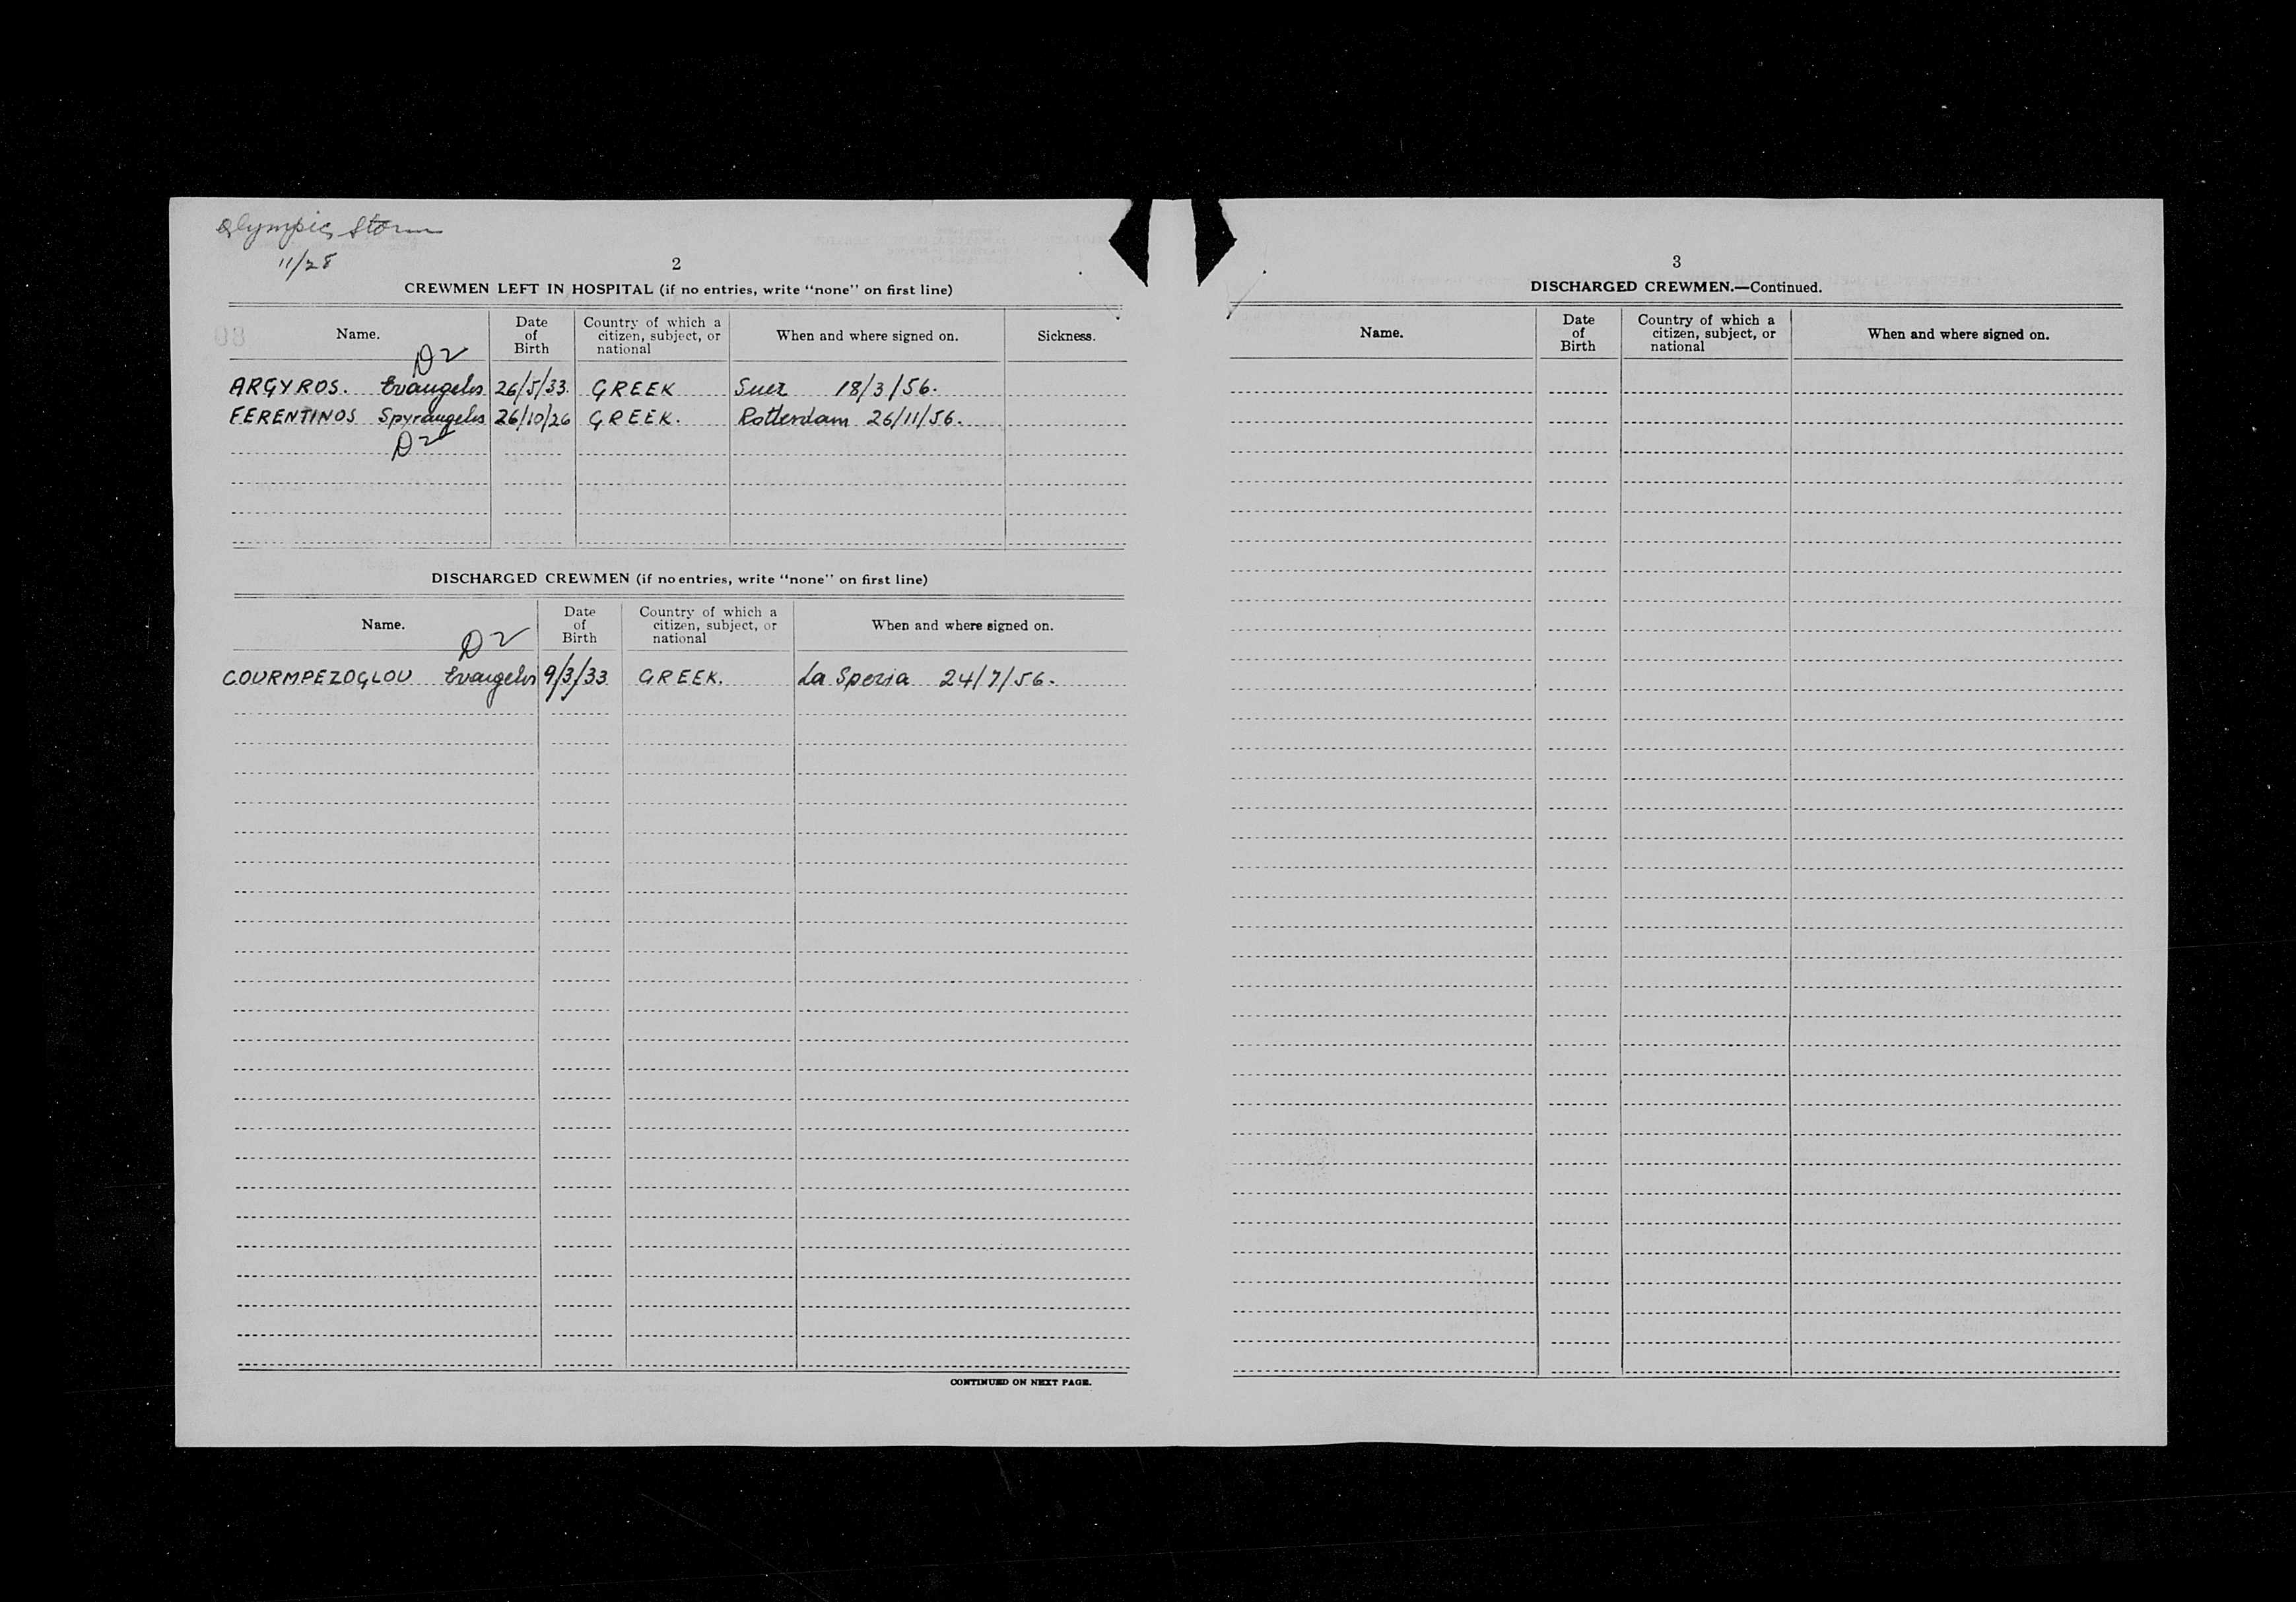 Olympic Storm
11/28
2
CREWMEN LEFT IN HOSPITAL (if no entries, write "none" on first line)
Name. Date of Birth Country of which a citizen, subject, or national When and where signed on. Sickness.
D2
ARGYROS. Evangelos 26/5/33. GREEK Suez 18/3/56.
FERENTINOS Spyrangelos 26/10/26 GREEK. Rotterdam 26/11/56.
D2
DISCHARGED CREWMEN (if no entries, write "none" on first line)
Name. Date of Birth Country of which a citizen, subject, or national When and where signed on.
D2
COURMPEZOGLOU Evangelos 9/3/33 GREEK. La Spezia 24/7/56.
CONTINUED ON NEXT PAGE.
3
DISCHARGED CREWMEN.—Continued.
Name. Date of Birth Country of which a citizen, subject, or national When and where signed on.